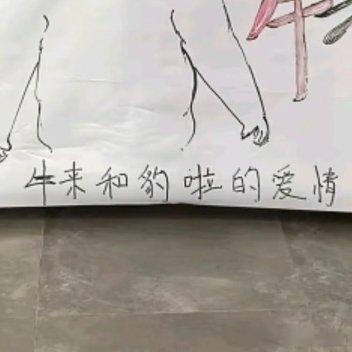 牛来和豹啦的爱情